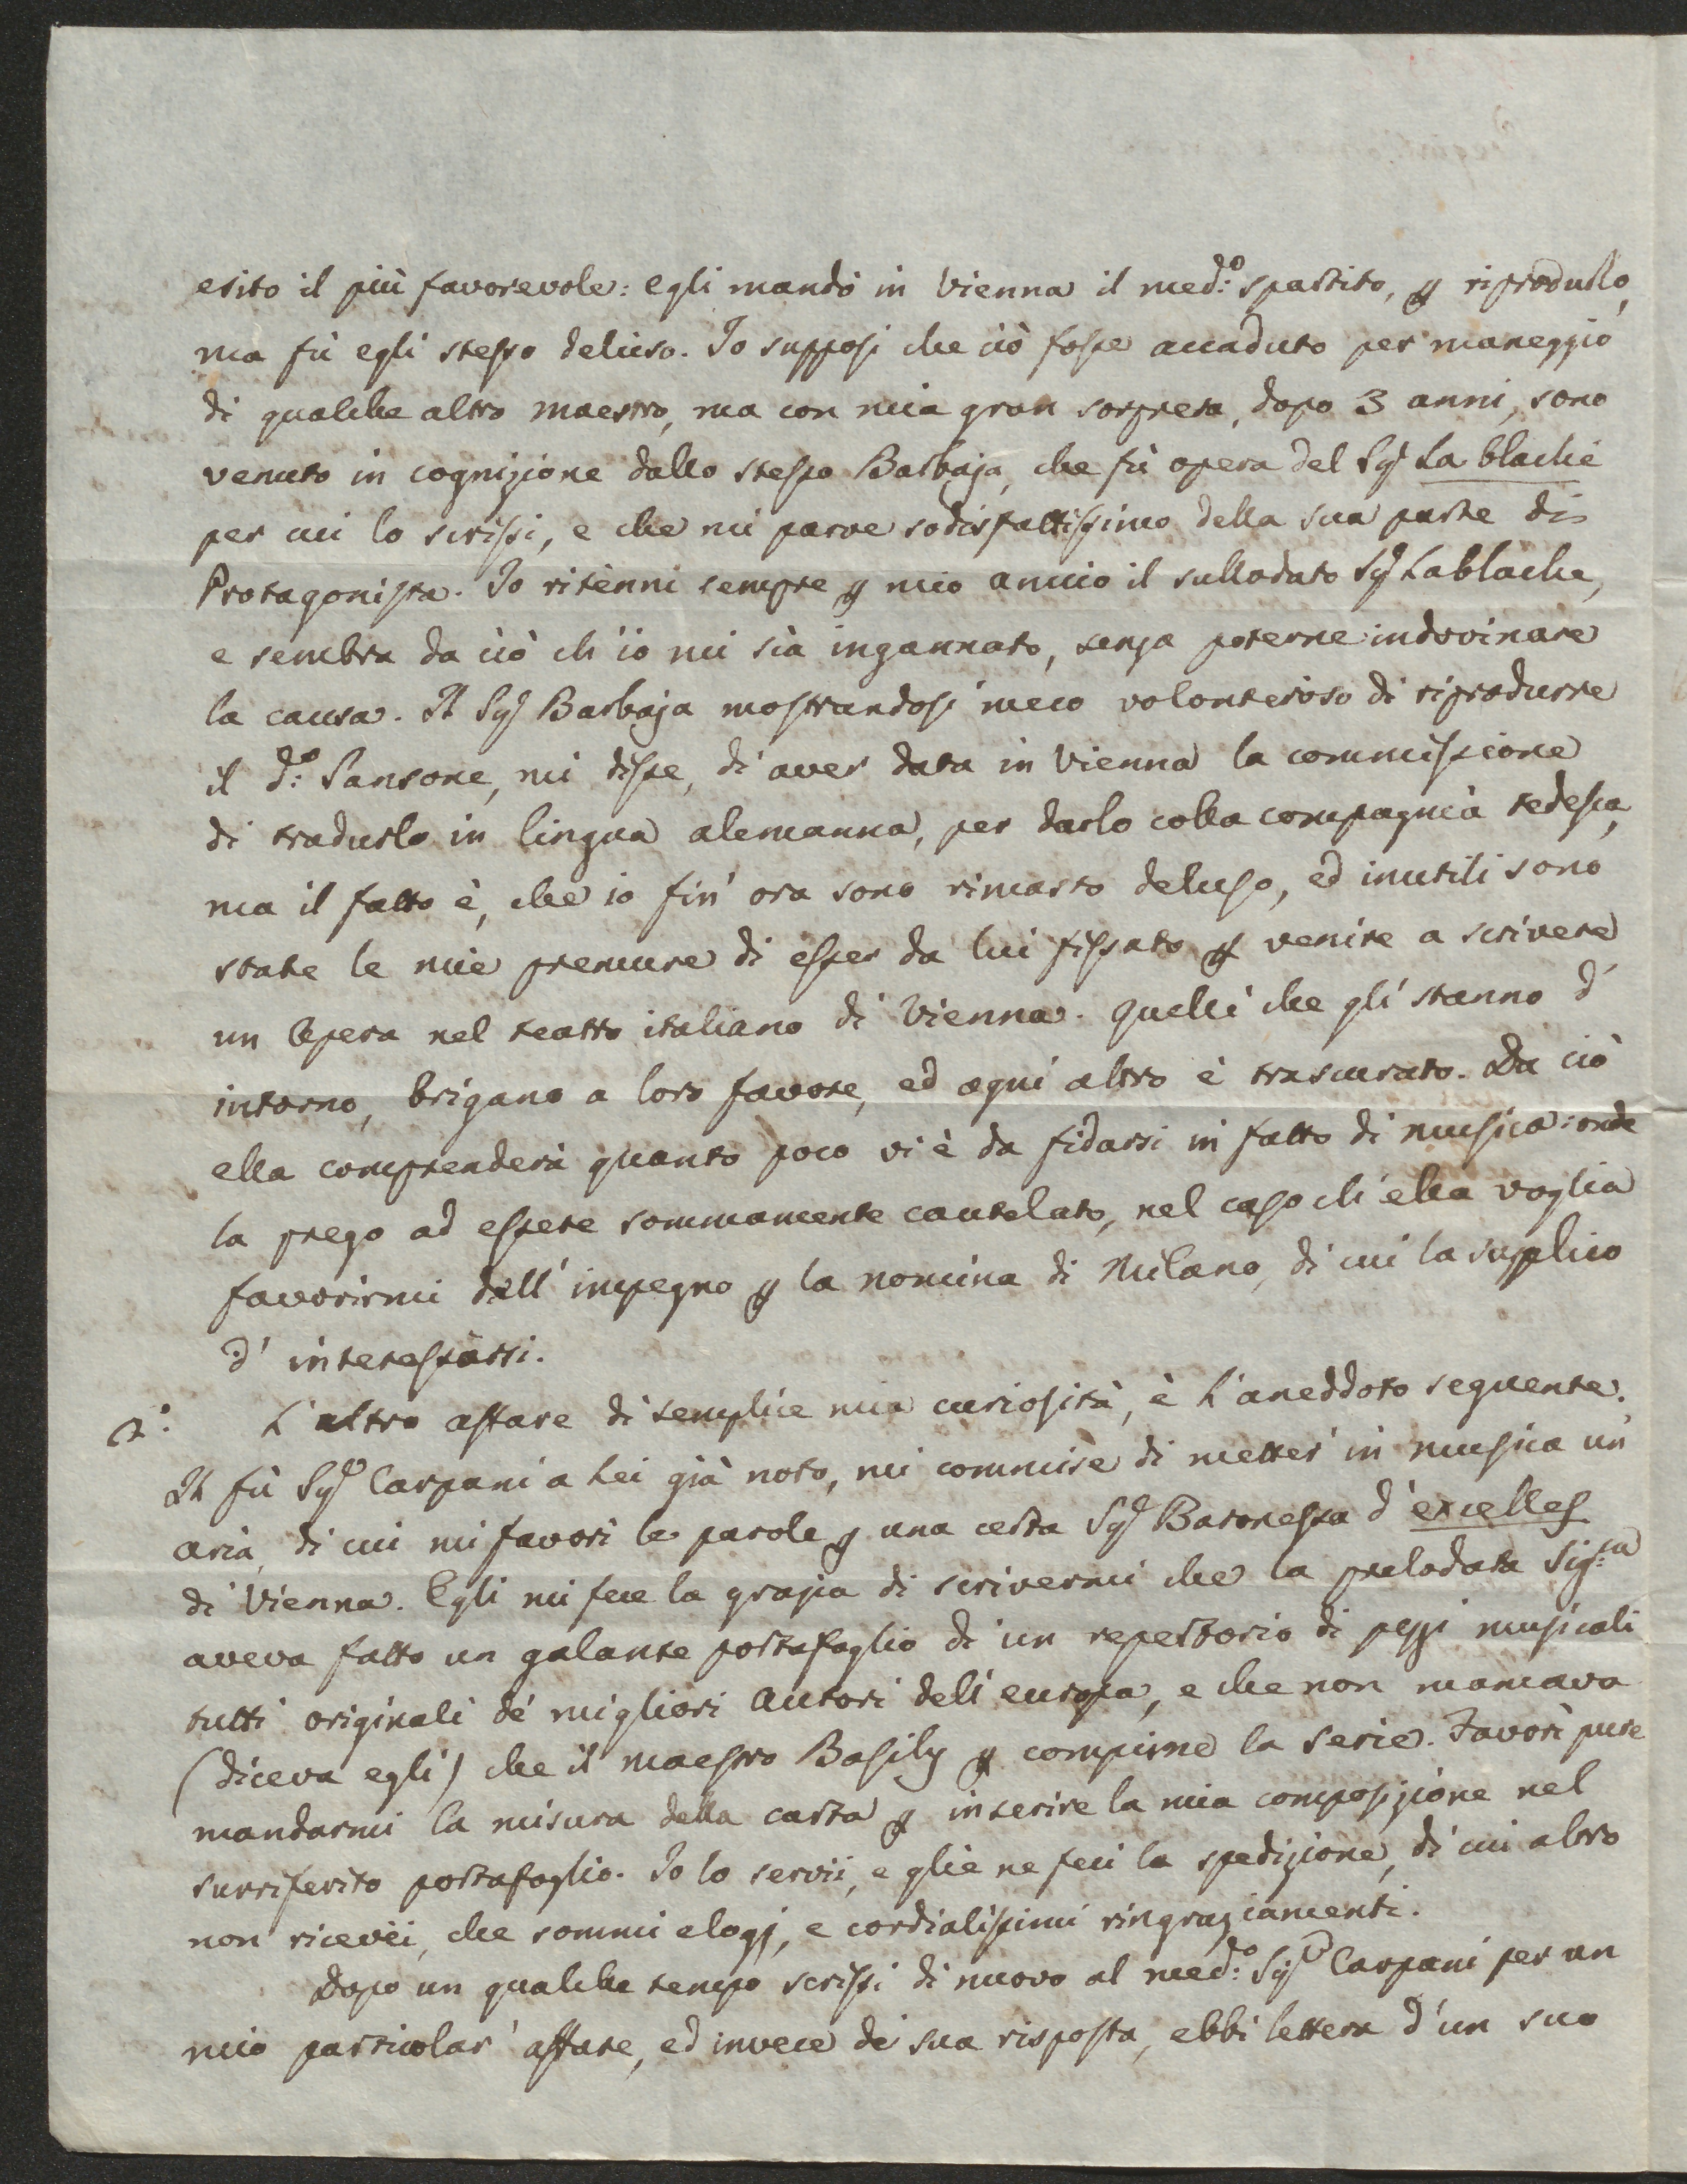 esito il più favorevole: egli mandò in Vienna il med:o spartito, p riprodurlo,
ma fù egli stesso deluso. Io supposi che ciò fosse accaduto per maneggio
di qualche altro maestro, ma con mia gran sorpresa, dopo 3 anni, sono
venuto in cognizione dallo stesso Barbaja, che fù opera del Sg.r La blache
per cui lo scrissi, e che mi parve sodisfattissimo della sua parte di
Protagonista. Io ritenni sempre p mio amico il sullodato Sg.r Lablache,
e sembra da ciò ch'io mi sia ingannato, senza poterne indovinare
la causa. Il Sg.r Barbaja mostrandosi meco volonteroso di riprodurre
il d:o Sansone, mi disse, di aver data in Vienna la commissione
di tradurlo in lingua alemanna, per darlo colla compagnia tedesca,
ma il fatto è, che io fin' ora sono rimasto deluso, ed inutili sono
state le mie premure di esser da lui fissato p venire a scrivere
un Opera nel teatro italiano di Vienna. Quelli che gli stanno d'
intorno, brigano a loro favore, ed ogni altro è trascurato. Da ciò
ella comprenderà quanto poco vi è da fidarsi in fatto di musica: onde
la prego ad essere sommamente cautelato, nel caso ch'ella voglia
favorirmi dell' impegno p la nomina di Milano, di cui la supplico
d' interessarsi.
2.° L'altro affare di semplice mia curiosità, è l'aneddoto seguente.
Il fù Sg.r Carpani a Lei già noto, mi commise di metter' in musica un'
aria, di cui mi favorì le parole p una certa Sg.a Baronessa d'excelles
di Vienna. Egli mi fece la grazia di scrivermi che la prelodata Sig:ra
aveva fatto un galante portafoglio di un repertorio di pezzi musicali
tutti originali de' migliori Autori dell'europa, e che non mancava
(diceva egli) che il maestro Basily p compirne la serie. Favorì pure
mandarmi la misura della carta p inserire la mia composizione nel
surriferito portafoglio. Io lo servii, e glie ne feci la spedizione, di cui altro
non ricevei, che sommi elogj, e cordialissimi ringraziamenti.
Dopo un qualche tempo scrissi di nuovo al med:o Sg.r Carpani per un
mio particolar' affare, ed invece di sua risposta, ebbi lettera d'un suo